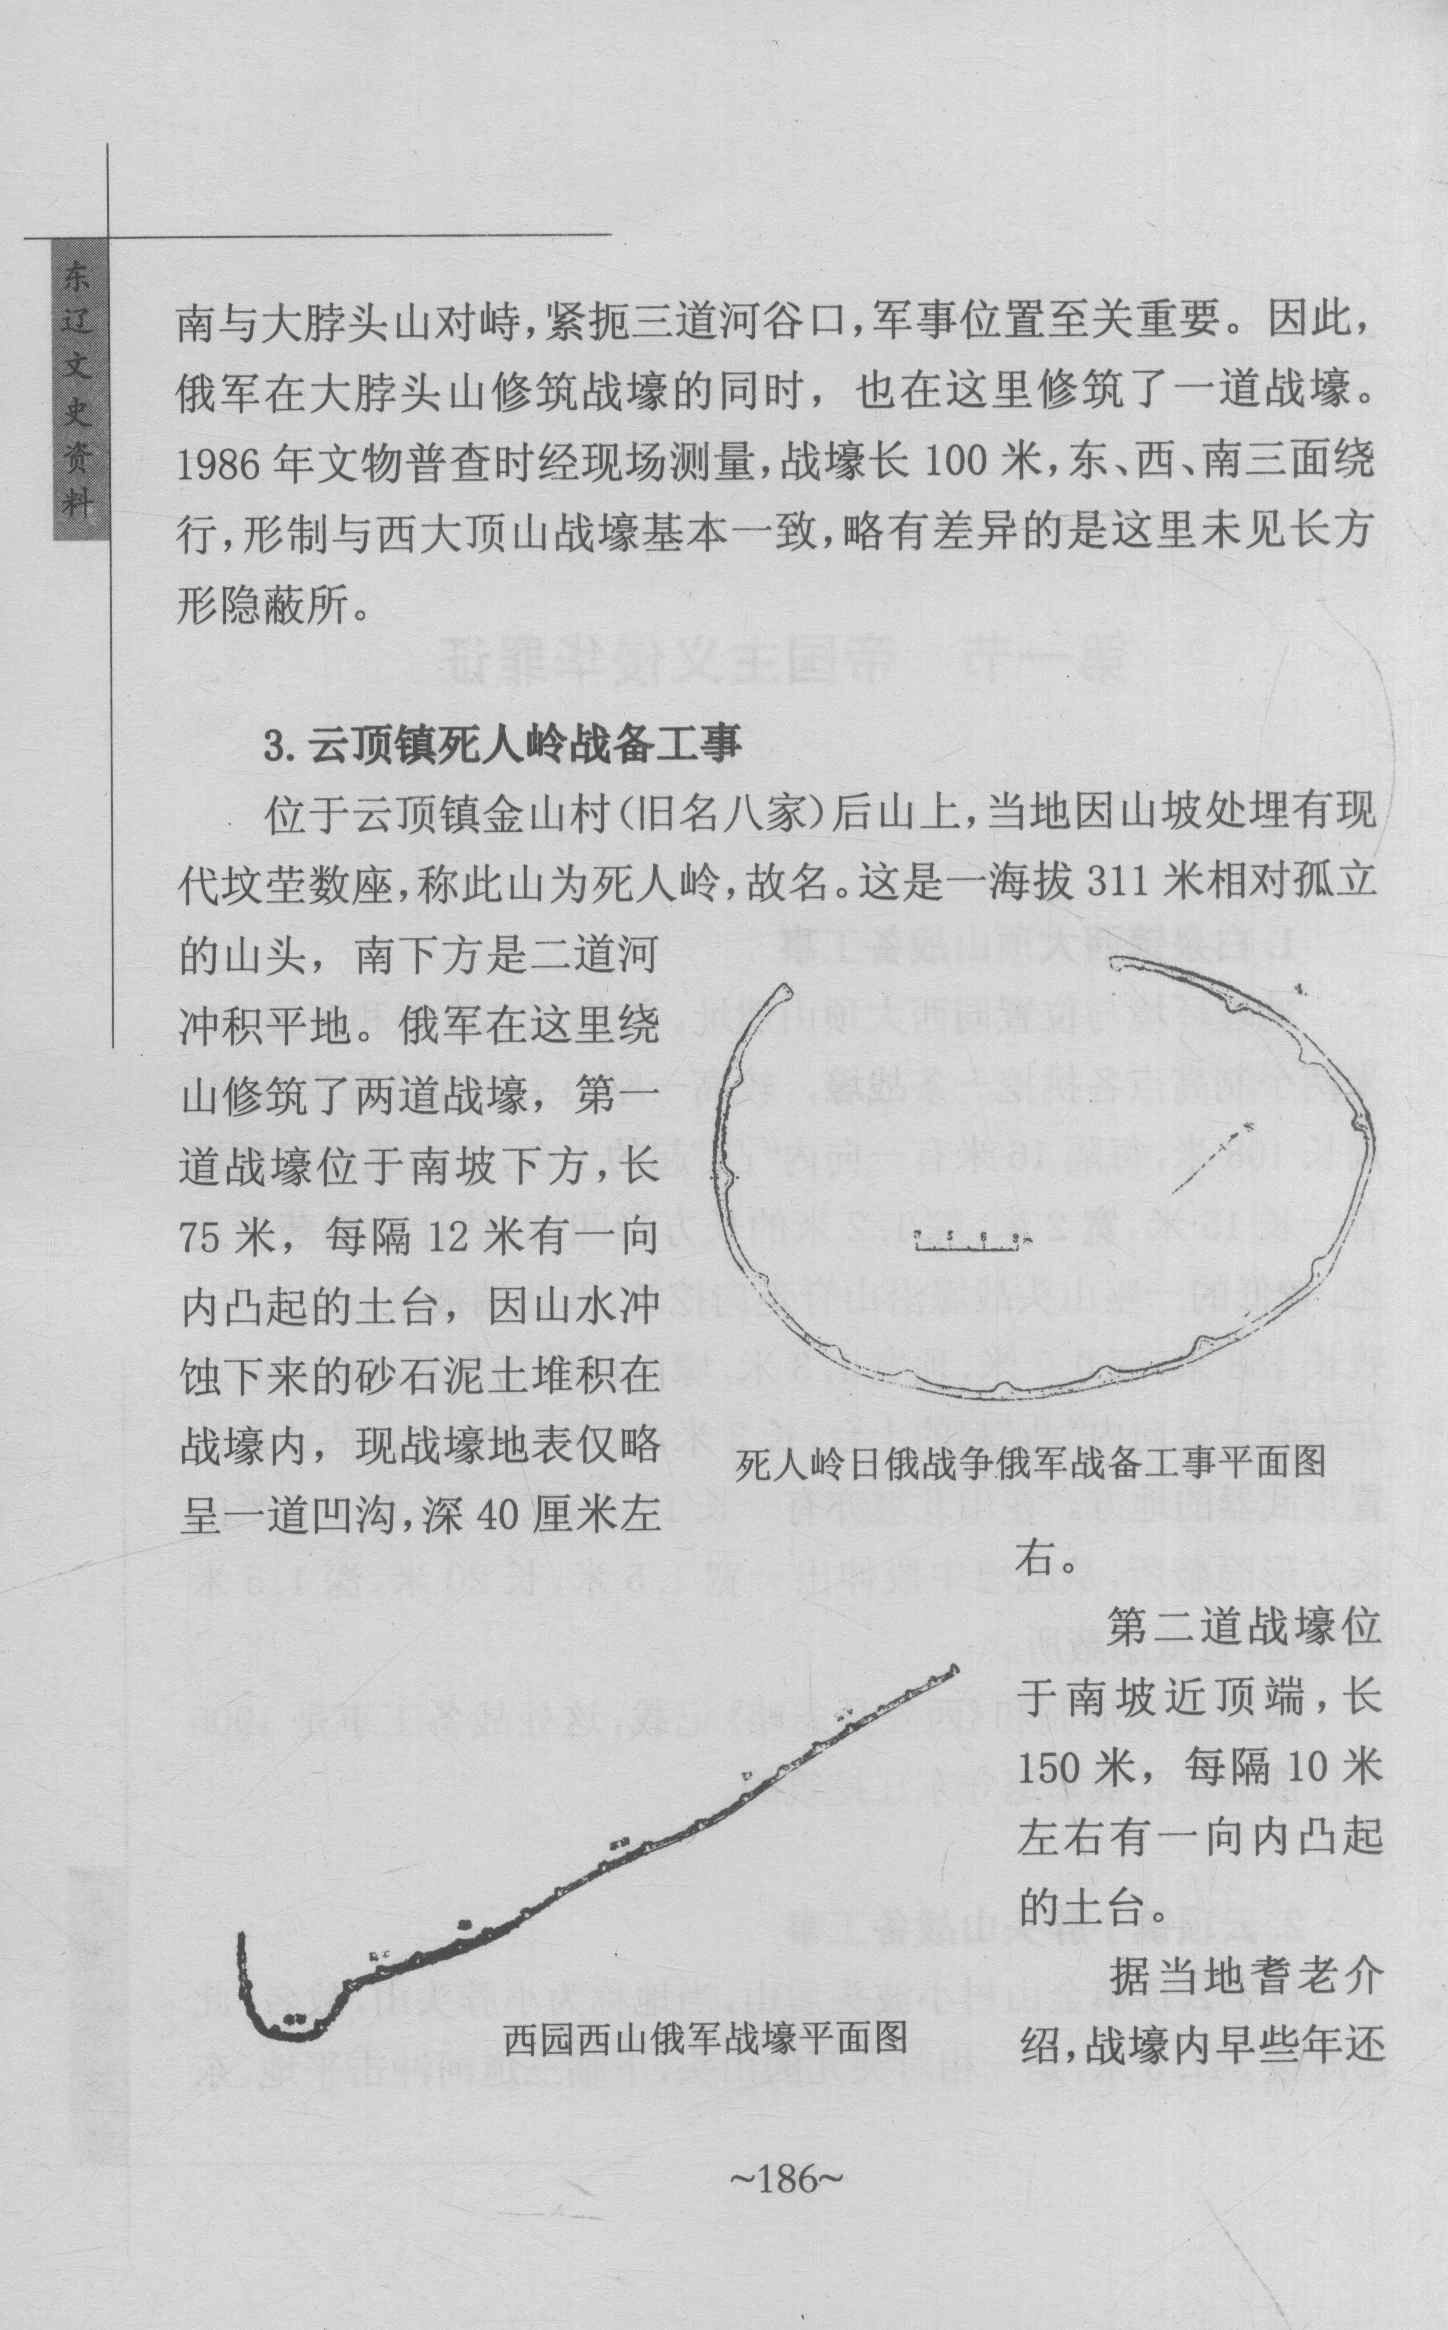 东辽文史资料
南与大脖头山对峙，紧扼三道河谷口，军事位置至关重要。因此，
俄军在大脖头山修筑战壕的同时，也在这里修筑了一道战壕。
1986年文物普查时经现场测量，战壕长100米，东、西、南三面绕
行，形制与西大顶山战壕基本一致，略有差异的是这里未见长方
形隐蔽所。
3.云顶镇死人岭战备工事
位于云顶镇金山村（旧名八家）后山上，当地因山坡处埋有现
代坟茔数座，称此山为死人岭，故名。这是一海拔311米相对孤立
的山头，南下方是二道河
冲积平地。俄军在这里绕
山修筑了两道战壕，第一
道战壕位于南坡下方，长
75米，每隔12米有一向
内凸起的土台，因山水冲
蚀下来的砂石泥土堆积在
战壕内，现战壕地表仅略
呈一道凹沟，深40厘米左
死人岭日俄战争俄军战备工事平面图
右。
第二道战壕位
于南坡近顶端，长
150米，每隔10米
左右有一向内凸起
的土台。
据当地耆老介
绍，战壕内早些年还
西园西山俄军战壕平面图
~186~